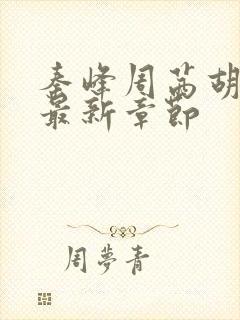 秦峰周茜胡
最新章節
周夢青